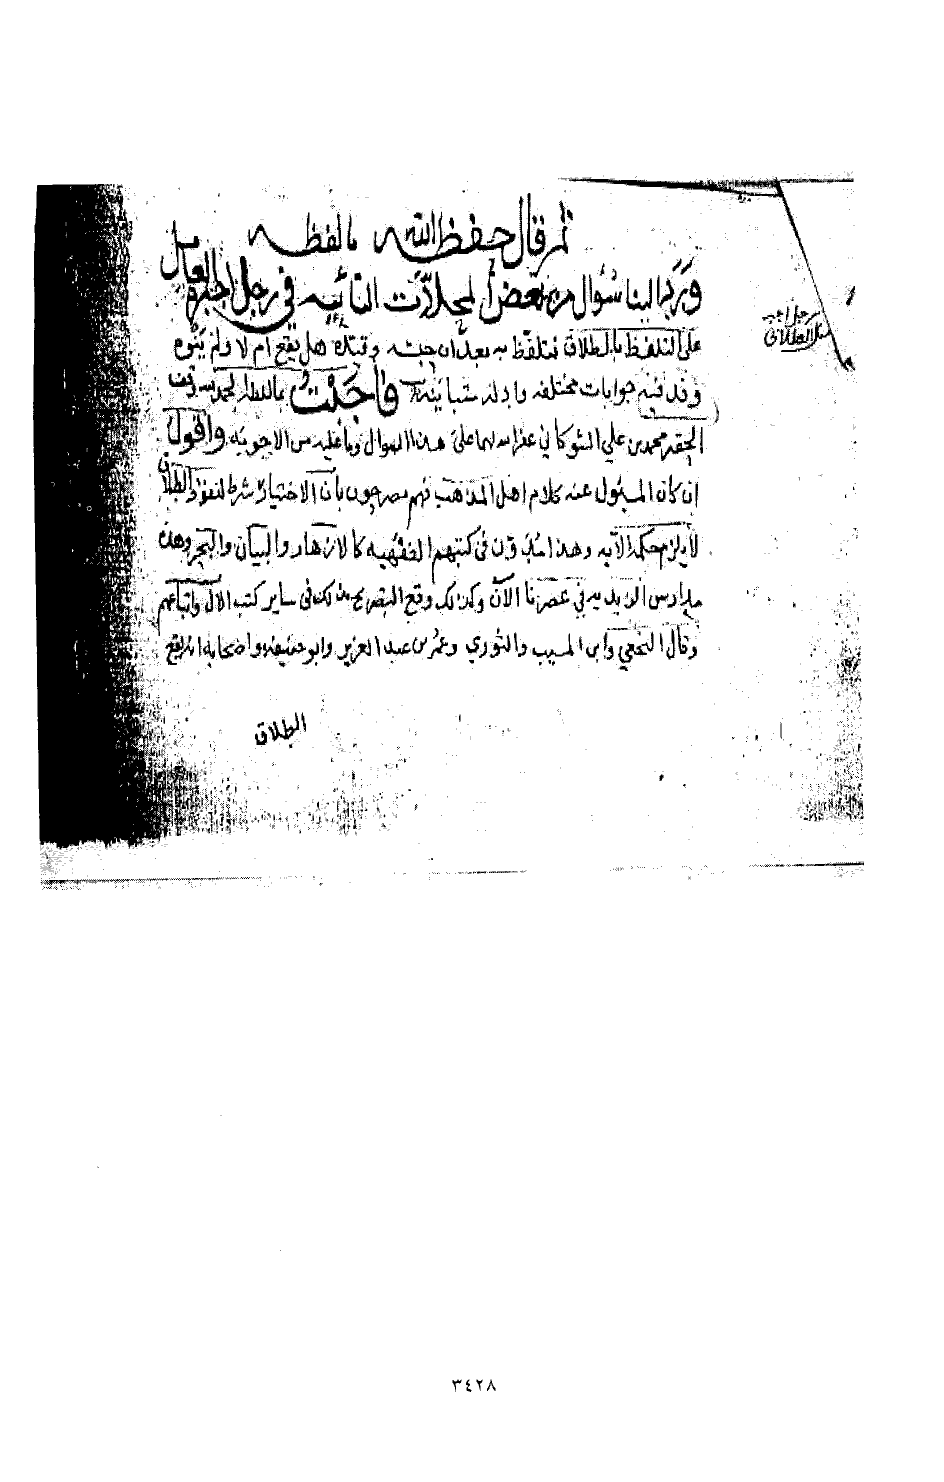 ثم قال حفظه الله ما لفظه
ورد الينا سؤال من بعض المحلات النائيه في رجل اجبره العامل
على التلفظ بالطلاق فتلفظ به بعد ان وقيده هل يقع ام لا ولم ينوه
وقد فيه جوابات مختلفه وادله متباينه فاجبت بالنظر
الحقير محمد بن علي الشوكاني غفر الله لهما على هذا السؤال وما عليه من الاجوبه واقول
ان كان المسئول عنه كلام اهل المذهب فهم مصرحون بان الاختيار شرط لنفوذ الطلاق
لا يلزم حكمه الا به وهذا مدون في كتبهم الفقهيه كالازهار والبيان والبحر وهذه
مدارس الزيديه في عصرنا الآن وكذلك وقع التصريح بذلك في ساير كتب الال واتباعهم
وقال النخعي وابن المسيب والثوري وعمر بن عبد العزيز وابو حنيفه واصحابه انه يقع
الطلاق
رجل اجبر
على الطلاق
٣٤٢٨